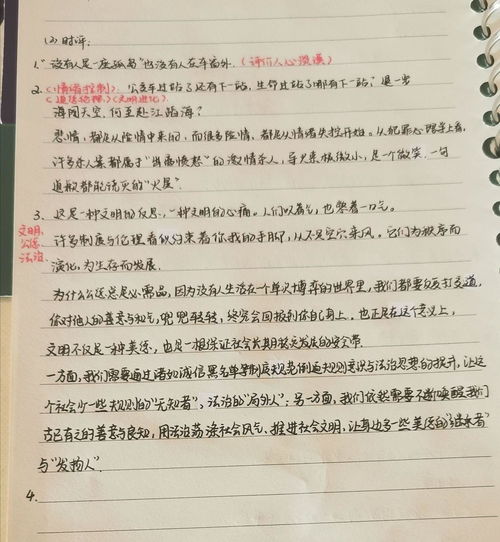 (2) 时评:
1. "没有人是一座孤岛"也没有人在车窗外.(评价人心漠漠)
2. (情绪控制): 公交车过站了还有下一站,生命过站了哪有下一站?退一步
(道德伦理)(文明进化)
海阔天空.何至赴江陷海?
悲情,都是从险情中来的,而很多险情,都是从情绪失控开始。从犯罪心理学上看,
许多杀人案都属于"当场愤怒"的激情杀人,导火索极微小,是一个微笑.一句
道歉都能浇灭的"火星".
3. 这是一种文明的反思,一种文明的心痛。人们叹着气,也攀着一口气。
文明、公德、法治、
许多制度与伦理看似约束着你我的手脚,从不是空穴来风。它们为秩序而
演化,为生存而发展.
为什么公德总是必需品,因为没有人生活在一个单次博弈的世界里,我们都要相互打交道,
你对他人的善意与和气,兜兜转转,终究会回报到你自己身上,也正是在这个意义上,
文明不仅是一种美德,也是一根保证社会长期稳定发展的安全带.
一方面,我们需要通过诸如诚信黑名单等制度规范倒逼规则意识与法治思想的提升,让这
个社会少一些规则的"无知者",法治的"局外人";另一方面,我们依然需要不断唤醒我们
古已有之的善意与良知,用法治荡涤社会风气、推进社会文明,让身边多一些美德的"继承者"
与"发扬人".
4.